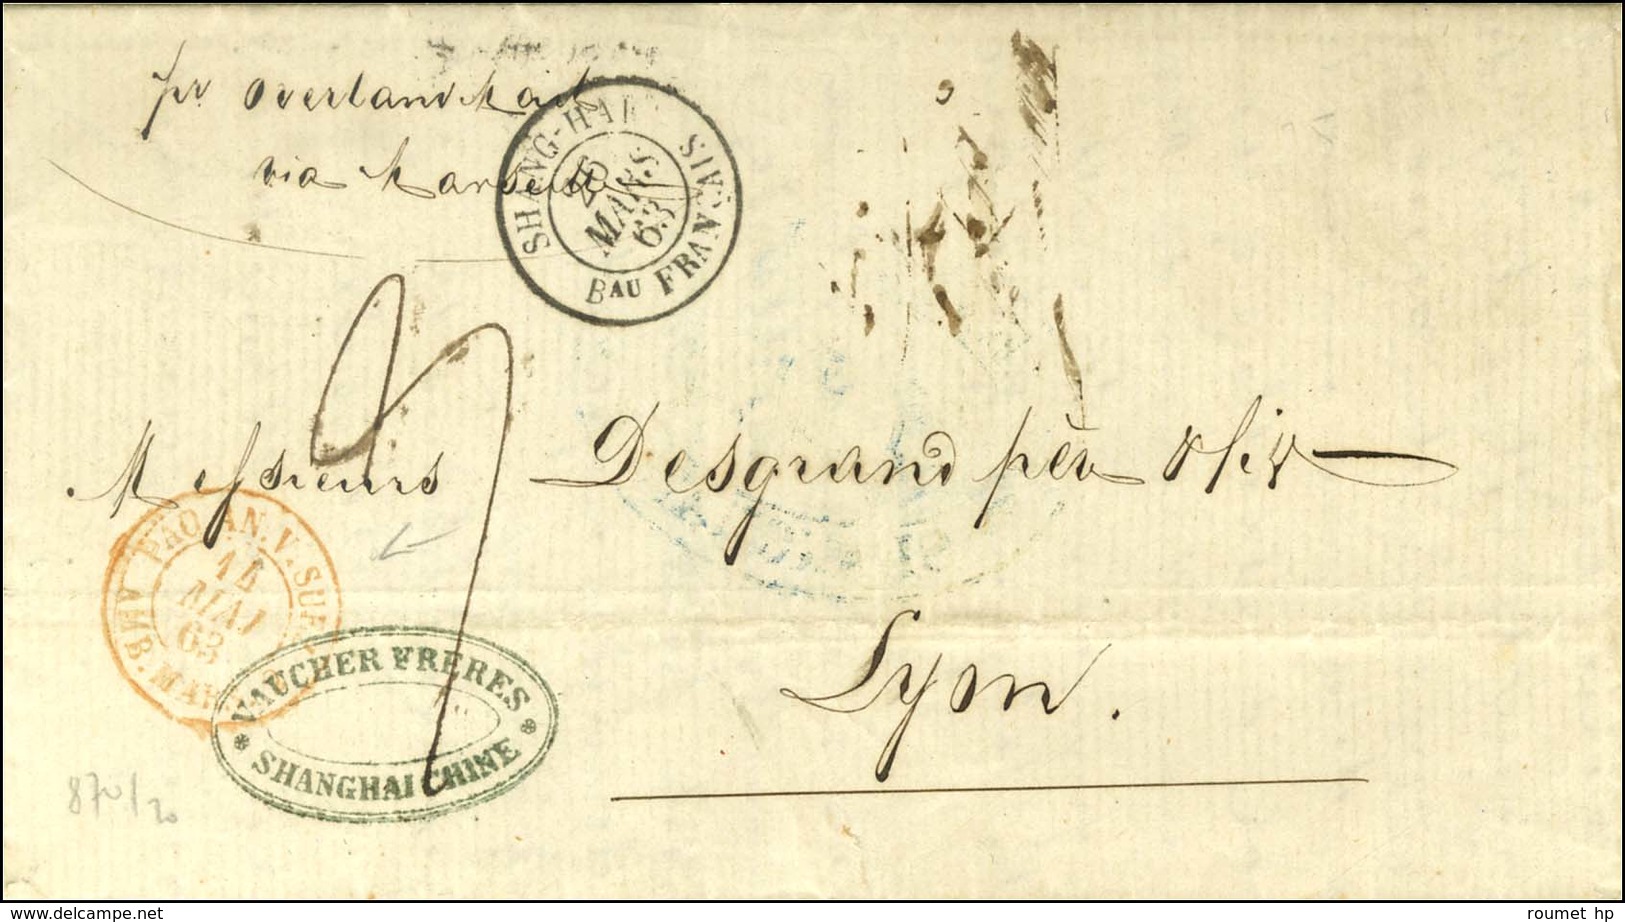 pr Overland Mail
via Marseille
SHANG-HAI
BAU FRANÇAIS
26
MARS
63
Messieurs Desgrand père & fils
PAQ. AN. V. SUEZ
14
MAI
63
AMB. MAR
VAUCHER FRERES
SHANGHAI CHINE
Lyon.
870/20
www.delcampe.net
roumet hp